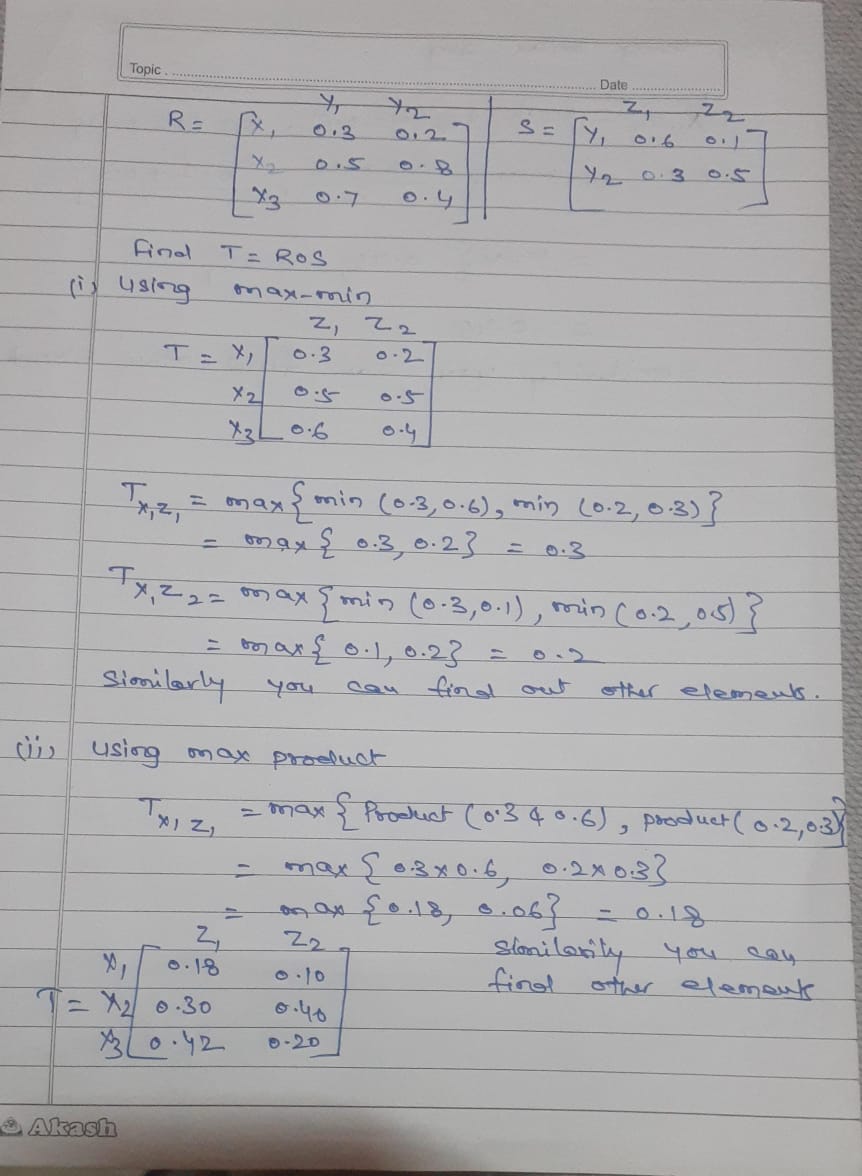 Topic
Date
Y1 Y2 Z1 Z2
R = [X1 0.3 0.2] S = [Y1 0.6 0.1]
X2 0.5 0.8 Y2 0.3 0.5
X3 0.7 0.4
Find T = ROS
(i) using max-min
Z1 Z2
T = X1 0.3 0.2
X2 0.5 0.5
X3 0.6 0.4
Tx1z1 = max{min (0.3, 0.6), min (0.2, 0.3)}
= max{ 0.3, 0.2} = 0.3
Tx1z2 = max{min (0.3, 0.1), min (0.2, 0.5)}
= max{ 0.1, 0.2} = 0.2
Similarly you can find out other elements.
(ii) using max product
Tx1z1 = max{ Product (0.3 & 0.6), product (0.2, 0.3)}
= max {0.3 x 0.6, 0.2 x 0.3}
= max {0.18, 0.06} = 0.18
Z1 Z2 Similarily you can
X1 0.18 0.10 find other elements
T = X2 0.30 0.40
X3 0.42 0.20
Akash